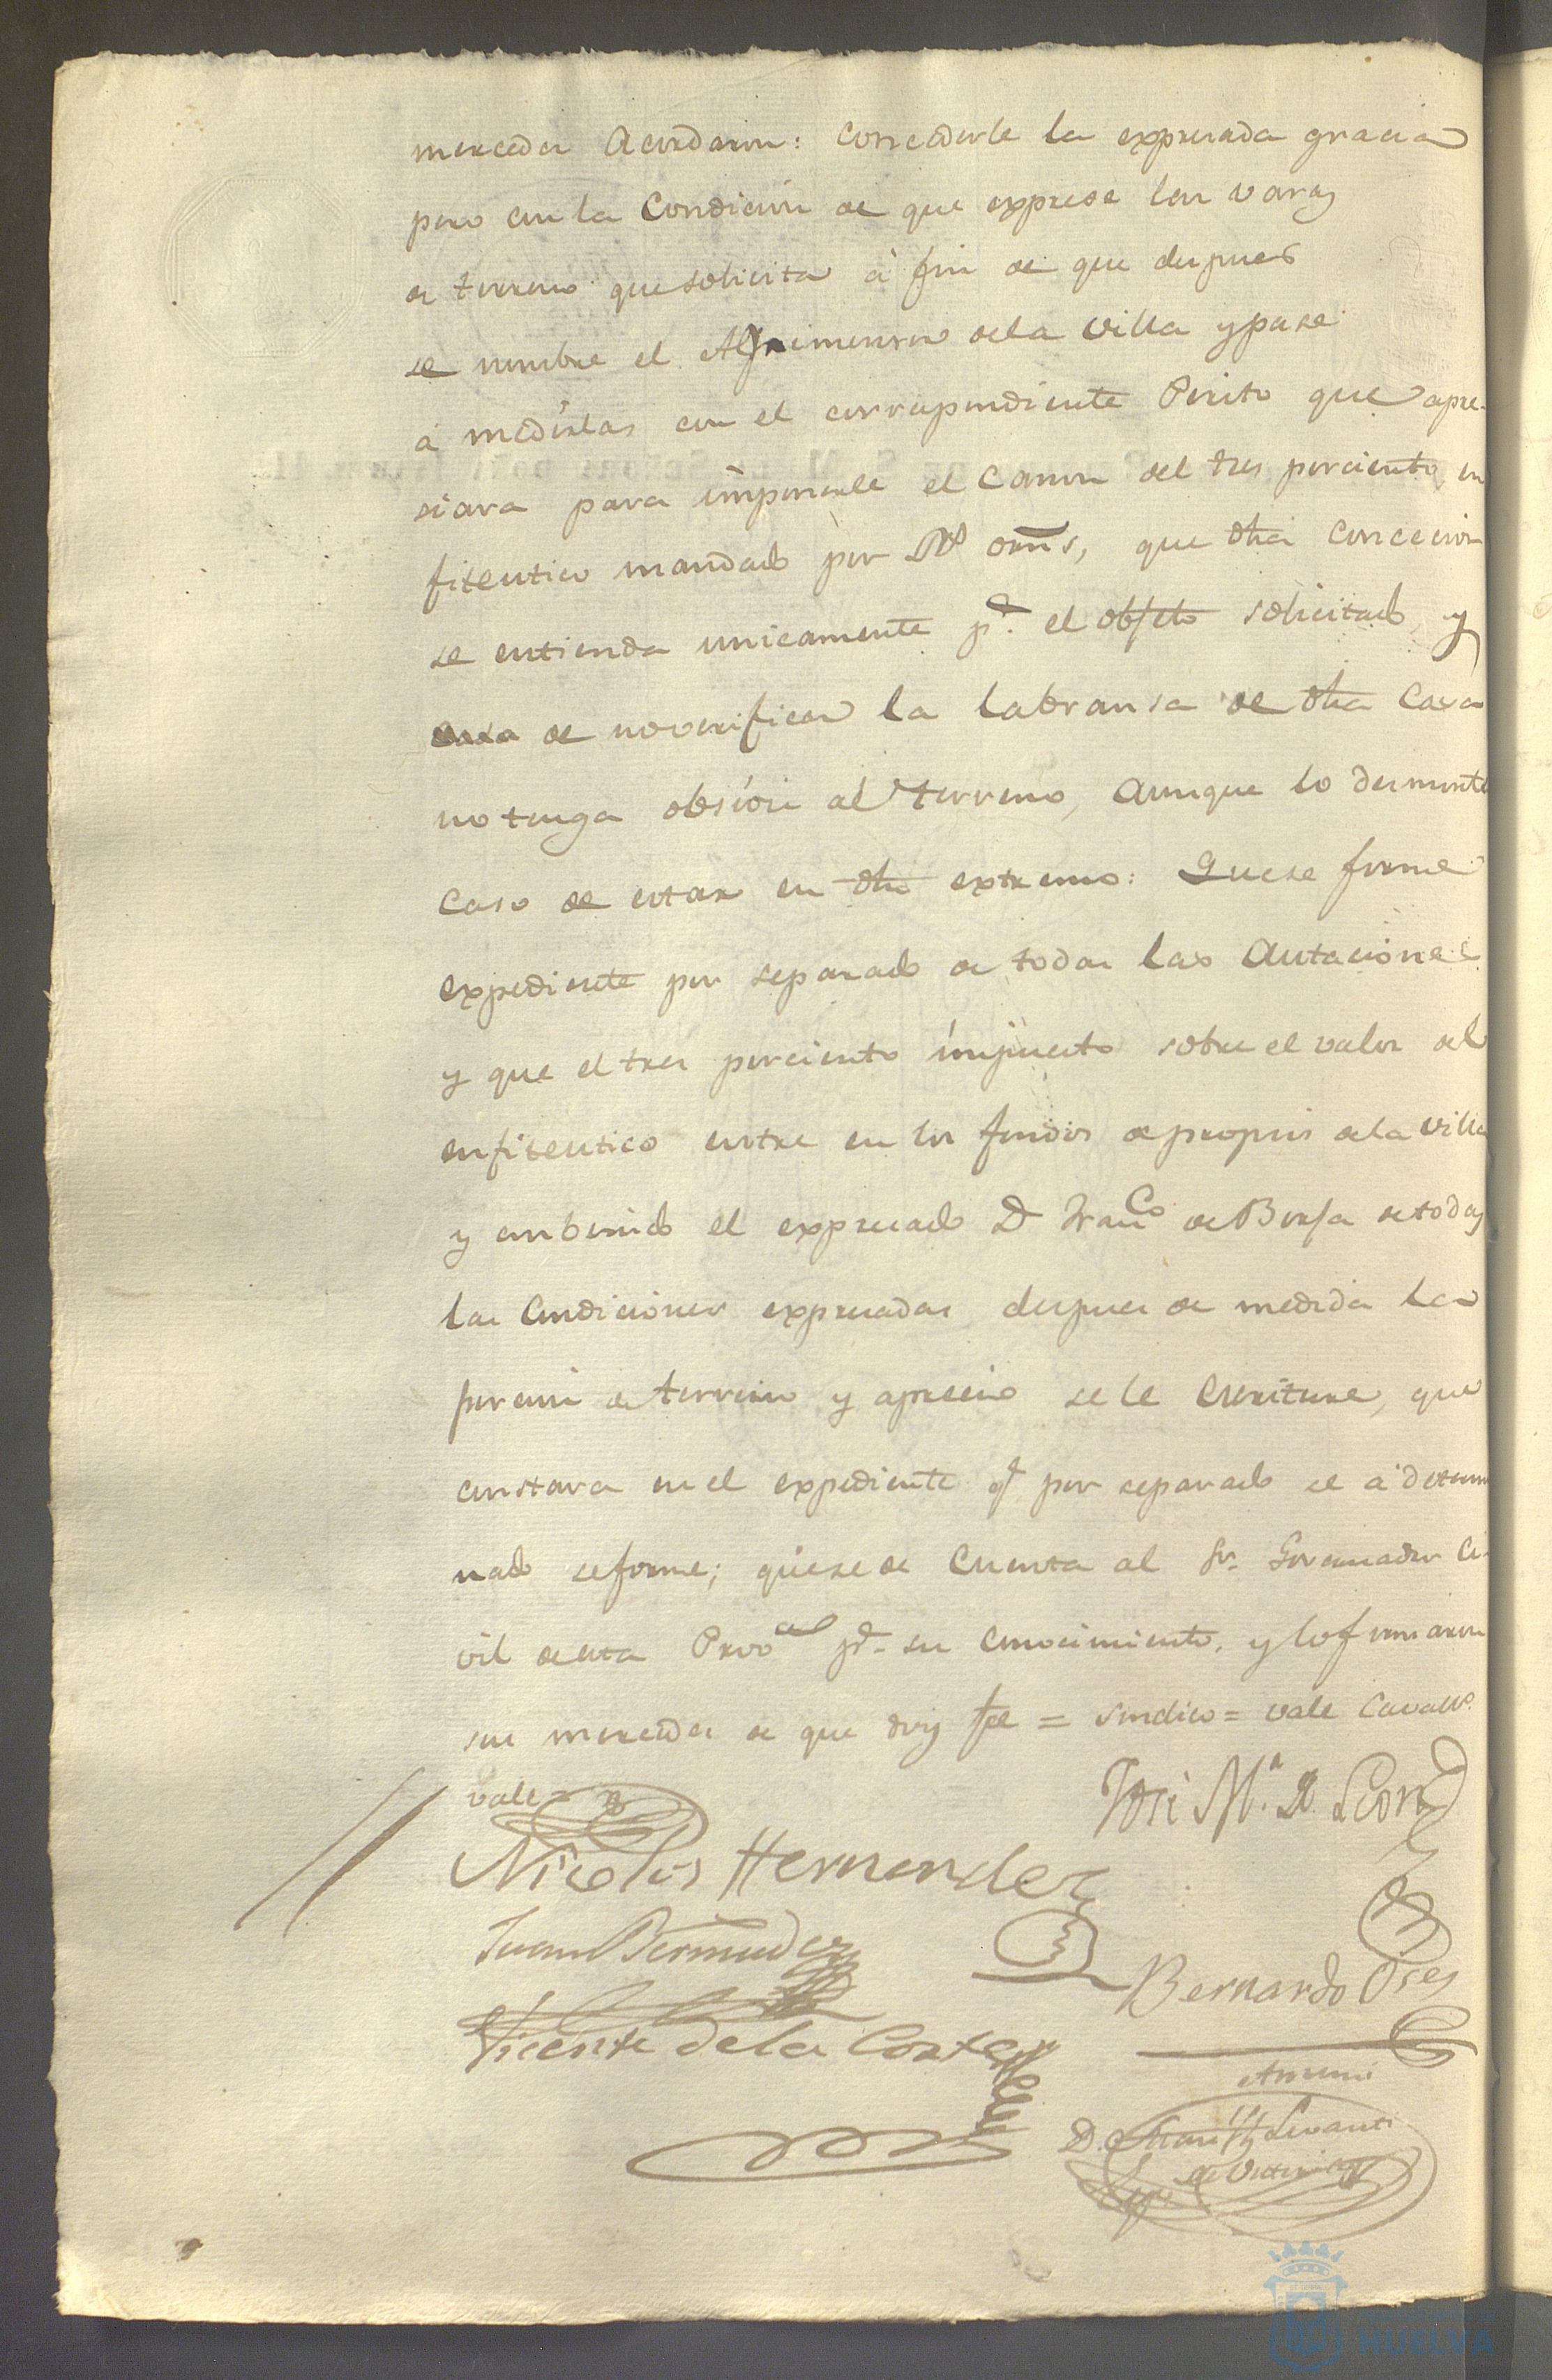 mercedes Acordaron: concederle la expresada gracia
pero con la Condicion de que exprese las varas
de terreno que solicita à fin de que despues
se nombre el Agrimensor dela villa y pase
á medirlas con el correspondiente Perito que apre-
siara para imponerle el Canon del tres porciento en
fiteutico mandado por Rs. ordns, que dha concecion
se entienda unicamente pa. el objeto solicitado, y
de no verificar la labransa de dha Casa
no tenga obsion al terreno, aunque lo desmonte
caso de estar en dho extremo: Que se forme
expediente por separado de todas las Autaciones
y que el tres porciento impuesto sobre el valor del
enfiteutico entre en los fondos de propios dela villa
y conbenido el expresado D Franco de Borja de todas
las Condiciones expresadas despues de medida la
porcion de terreno y aprecio se le escriture, que
constara en el expediente q por separado se a determi
nado se forme; que se de Cuenta al Sr. Governador Ci-
vil de esta Provca pa. su conocimiento, y lo firmaron
sus mercedes de que doy fee = sindico = vale Cavallo.
vale =
José Ma. de Leon
Nicolas Hernandez
Juan Bermudez
Bernardo Oses
Vicente dela Corte
Ante mi
D.
HUELVA